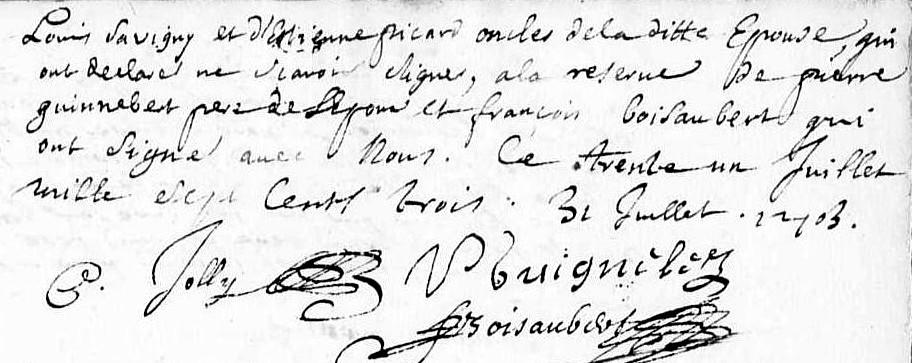 Louis Savigny et d'Estienne Picard oncles de la ditte Epouse, qui
ont declaré ne scavoir signer, a la reserve de pierre
guinnebert pere de l'epoux et françois boisaubert qui
ont signé avec Nous. Ce trente un Juillet
mille sept Cents trois. 31 Juillet. 1703.
Jolly
Boisaubert